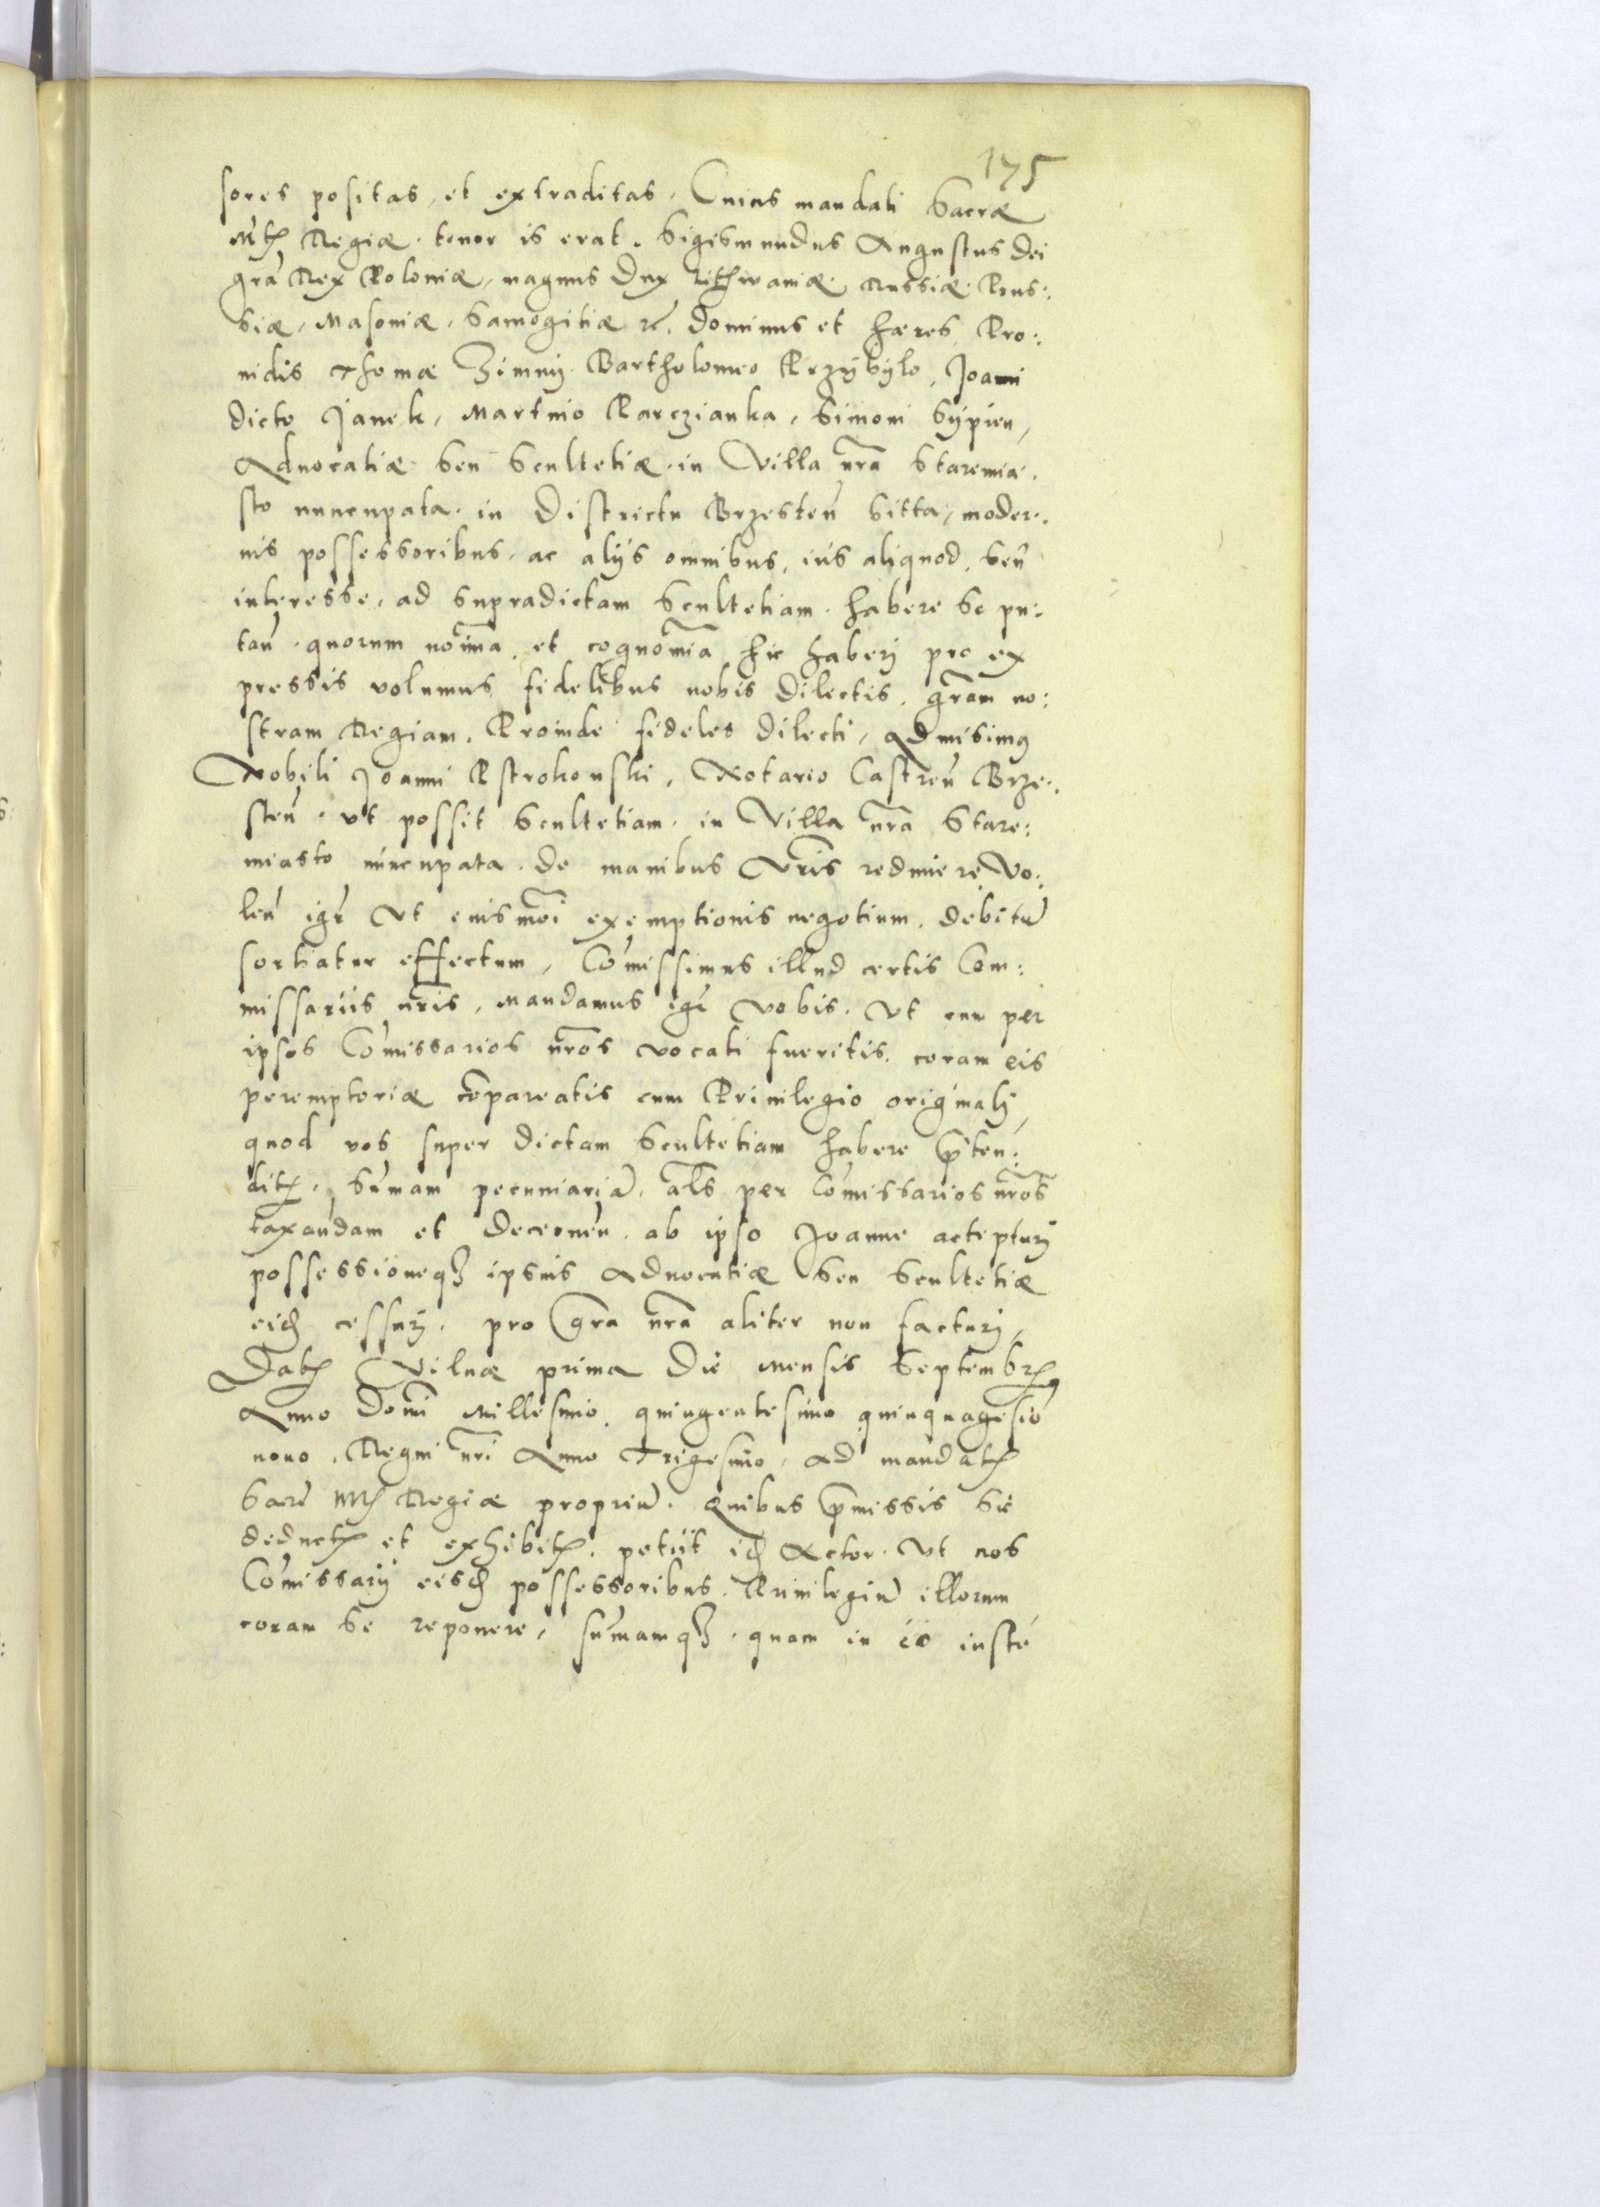 175
sores positas, et extraditas. Cuius mandati Sacræ
Mtis Regiæ tenor is erat. Sigismundus Augustus Dei
gra Rex Poloniæ, magnus Dux Lithwaniæ Russiæ Prus:
siæ, Masoniæ, Samogitiæ etc. dominus et hæres, Pro:
uidis Thomæ Zimny Bartholomeo Przybylo, Joanni
dicto Janek, Martino Parczianka, Simoni Sypien,
Aduocatiæ seu Scultetiæ in Villa nra Staremia.
sto nuncupata in Districtu Brzesten sitta, moder.
nis possessoribus, ac alijs omnibus, ius aliquod, seu
interesse, ad supradictam Scultetiam habere se pu:
tan quorum noina, et cognomia hic haberj pro ex
pressis volumus, fidelibus nobis dilectis, gram no:
stram Regiam. Proinde fideles dilecti, admisimus
Nobili Joanni Pstrokonski, Notario Castren Brze.
sten. vt possit Scultetiam in Villa nra Stare:
miasto nuncupata de manibus Vris redimere, Vo:
len igr Vt euismoi exemptionis negotium, debitu
sortiatur effectum, Comissimus illud certis Com:
missariis nris, mandamus igr vobis. Vt cum per
ipsos Comissarios nros vocati fueritis, coram eis
peremptoriæ compareatis cum Priuilegio originalj,
quod vos super dictam Scultetiam habere pten:
ditis. Sumam pecuniaria, als per Comissarios nros
taxandam et decernen. ab ipso Joanne accepturj
possessioneq ipsius Aduocatiæ seu Scultetiæ
eid cessurj. pro gra nra aliter non facturj,
Datis Vilnæ prima die mensis Septembris
Anno Domi Millesimo quingentesimo quinquagesio
nono, Regni nri Anno Trigesimo, ad mandatis
Sacre Mtis Regiæ propriu. Quibus pmissis sic
deductis et exhibitis, petiit id Actor Vt nos
Comissarij eisd possessoribus. Priuilegiu illorum
coram se reponere, sumamq quam in eo iuste